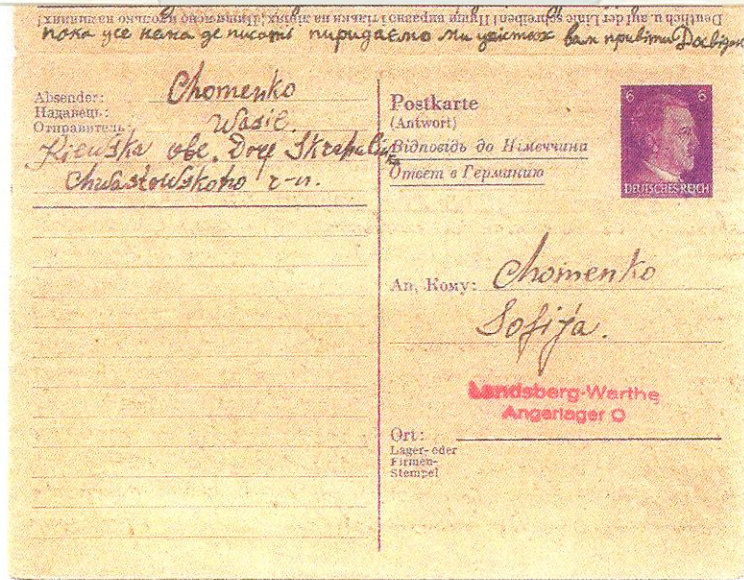 Deutlich u. auf der Linie schreiben! Пиши виразно і тільки на лініях! Пиши ясно и только на линиях!
пока усе нема де писать пиридаємо ми усі вам привіти Досвідан
Absender:
Надавець:
Отправитель:
Chomenko
Wasil.
Kiewska obl. Dorf
Chwastowskoho r-n.
Postkarte
(Antwort)
Відповідь до Німеччини
Ответ в Германию
6 6
DEUTSCHES REICH
An, Кому: Chomenko
Sofija.
Landsberg-Warthe
Angerlager O
Ort:
Lager- oder
Firmen-
Stempel